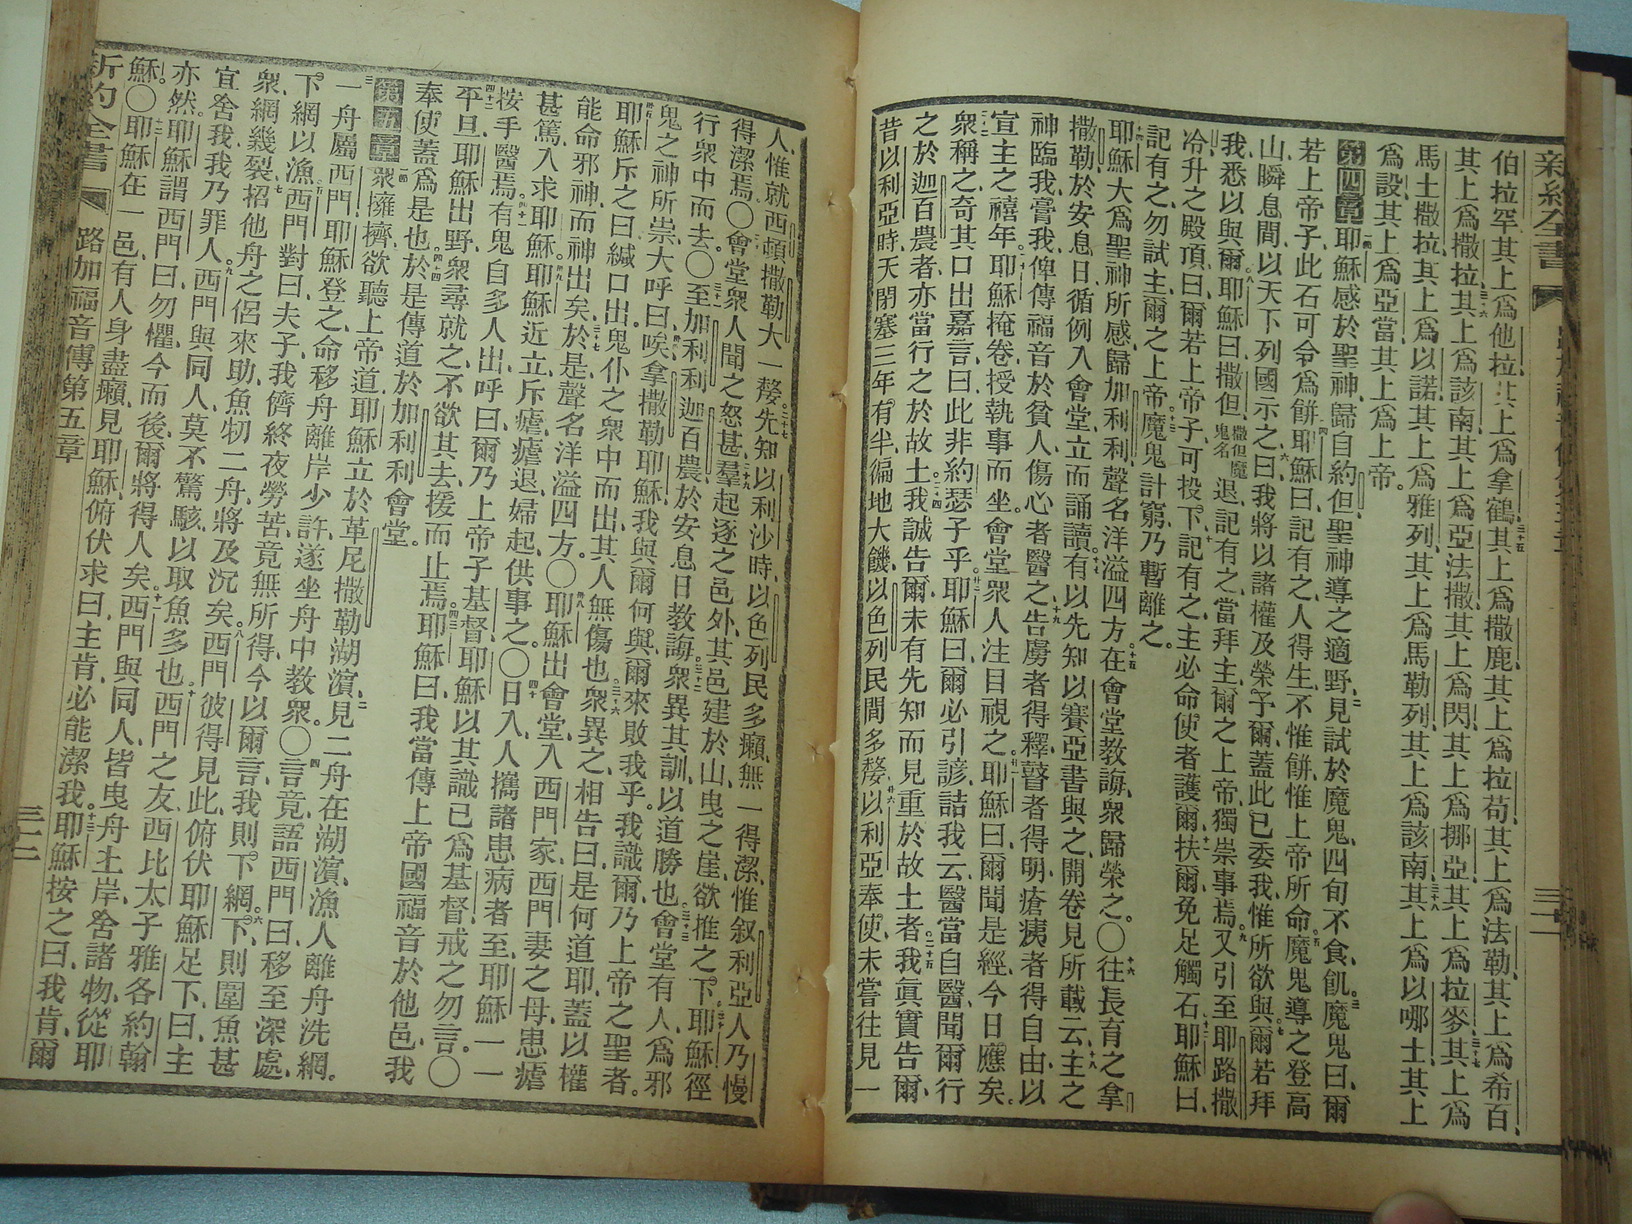 新約全書
伯拉罕、其上爲他拉、其上爲拿鶴、其上爲撒鹿、其上爲拉苟、其上爲法勒、其上爲希百、
其上爲撒拉、其上爲該南、其上爲亞法撒、其上爲閃、其上爲挪亞、其上爲拉麥、其上爲
馬土撒拉、其上爲以諾、其上爲雅列、其上爲馬勒列、其上爲該南、其上爲以哪士、其上
爲設、其上爲亞當、其上爲上帝。
第四章 耶穌感於聖神、歸自約但、聖神導之適野、見試於魔鬼、四旬不食、飢、魔鬼曰、爾
若上帝子、此石可令爲餅、耶穌曰、記有之、人得生不惟餅、惟上帝所命、魔鬼導之登高
山、瞬息間、以天下列國示之、曰、我將以諸權及榮予爾、蓋此已委我、惟所欲與、爾若拜
我、悉以與爾、耶穌曰、撒但撒但魔鬼名退、記有之、當拜主爾之上帝、獨崇事焉、又引至耶路撒
冷、升之殿頂、曰、爾若上帝子、可投下、記有之、主必命使者護爾、扶爾免足觸石、耶穌曰、
記有之、勿試主爾之上帝、魔鬼計窮、乃暫離之。
耶穌大爲聖神所感、歸加利利、聲名洋溢四方、在會堂教誨、衆歸榮之。〇往長育之拿
撒勒、於安息日、循例入會堂、立而誦讀、有以先知以賽亞書與之、開卷見所載云、主之
神臨我、膏我、俾傳福音於貧人、傷心者醫之、告虜者得釋、瞽者得明、瘡痍者得自由、以
宣主之禧年、耶穌掩卷、授執事而坐、會堂衆人注目視之、耶穌曰、爾聞是經、今日應矣。
衆稱之、奇其口出嘉言、曰、此非約瑟子乎、耶穌曰、爾必引諺詰我云、醫當自醫、聞爾行
之於迦百農者、亦當行之於故土、我誠告爾、未有先知而見重於故土者、我眞實告爾、
昔以利亞時、天閉塞三年有半、徧地大饑、以色列民間多嫠、以利亞奉使、未嘗往見一
人、惟就西頓撒勒大一嫠、先知以利沙時、以色列民多癩、無一得潔、惟叙利亞人乃慢
得潔焉。〇會堂衆人聞之怒甚、羣起逐之邑外、其邑建於山、曳之崖、欲推之下、耶穌徑
行衆中而去。〇至加利利迦百農、於安息日教誨、衆異其訓、以道勝也、會堂有人、爲邪
鬼之神所崇、大呼曰、唉、拿撒勒耶穌、我與爾何與、爾來敗我乎、我識爾、乃上帝之聖者。
耶穌斥之曰、緘口出、鬼仆之衆中而出、其人無傷也、衆異之、相告曰、是何道耶、蓋以權
能命邪神、而神出矣、於是聲名洋溢四方。〇耶穌出會堂、入西門家、西門妻之母患瘧
甚篤、人求耶穌、耶穌近立、斥瘧、瘧退、婦起供事之。〇日入、人攜諸患病者至、耶穌一一
按手醫焉、有鬼自多人出、呼曰、爾乃上帝子基督、耶穌以其識已爲基督、戒之勿言。〇
平旦、耶穌出野、衆尋就之、不欲其去、援而止焉、耶穌曰、我當傳上帝國福音於他邑、我
奉使蓋爲是也、於是傳道於加利利會堂。
第五章 衆擁擠、欲聽上帝道、耶穌立於革尼撒勒湖濱、見二舟在湖濱、漁人離舟洗網。
一舟屬西門、耶穌登之、命移舟離岸少許、遂坐舟中教衆。〇言竟、語西門曰、移至深處、
下網以漁、西門對曰、夫子、我儕終夜勞苦、竟無所得、今以爾言、我則下網、下、則圍魚甚
衆、網幾裂、招他舟之侶來助、魚牣二舟、將及沉矣、西門彼得見此、俯伏耶穌足下、曰、主
宜舍我、我乃罪人、西門與同人、莫不驚駭、以取魚多也、西門之友、西比太子雅各約翰
亦然、耶穌謂西門曰、勿懼、今而後、爾將得人矣、西門與同人、皆曳舟土岸、舍諸物、從耶
穌。〇耶穌在一邑、有人身盡癩、見耶穌、俯伏求曰、主肯、必能潔我、耶穌按之曰、我肯、爾
新約全書 路加福音傳第五章 三十二